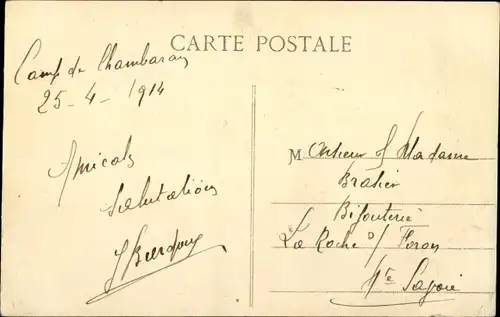 CARTE POSTALE
Camp de Chambaran
25-4-1914
Amicales
salutations
Monsieur & Madame
Bijouterie
La Roche s/ Foron
Hte Savoie